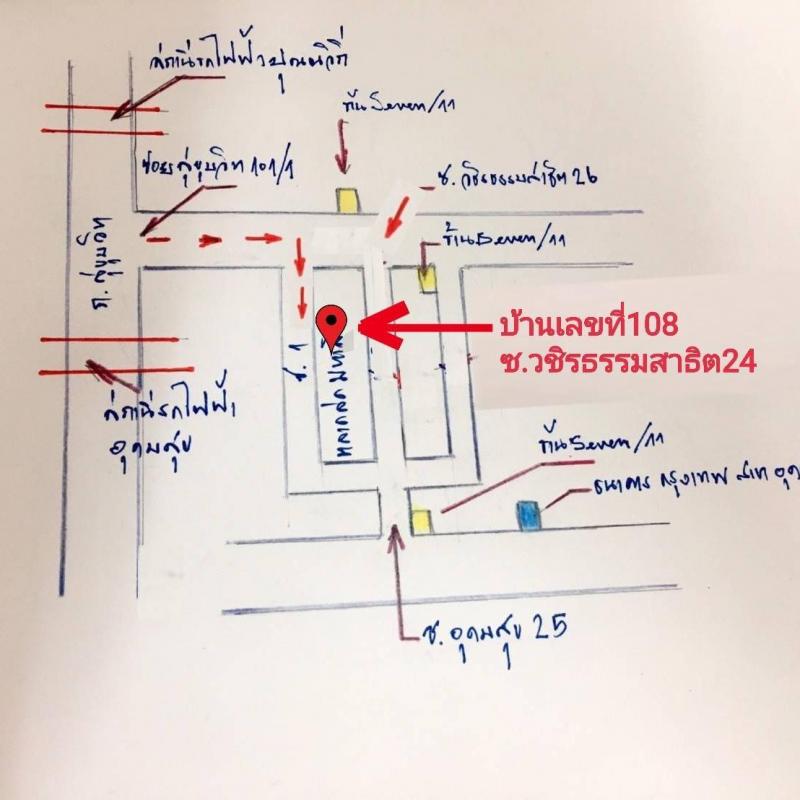 สถานีรถไฟฟ้าปุณณวิถี
ร้านSeven/11
ซอยสุขุมวิท 101/1
ซ.วชิรธรรมสาธิต 26
ร้านSeven/11
ถ.สุขุมวิท
บ้านเลขที่108
ซ.วชิรธรรมสาธิต24
ซ. 1
สถานีรถไฟฟ้า
อุดมสุข
ร้านSeven/11
ธนาคาร กรุงเทพ สาขา อุด
ซ. อุดมสุข 25